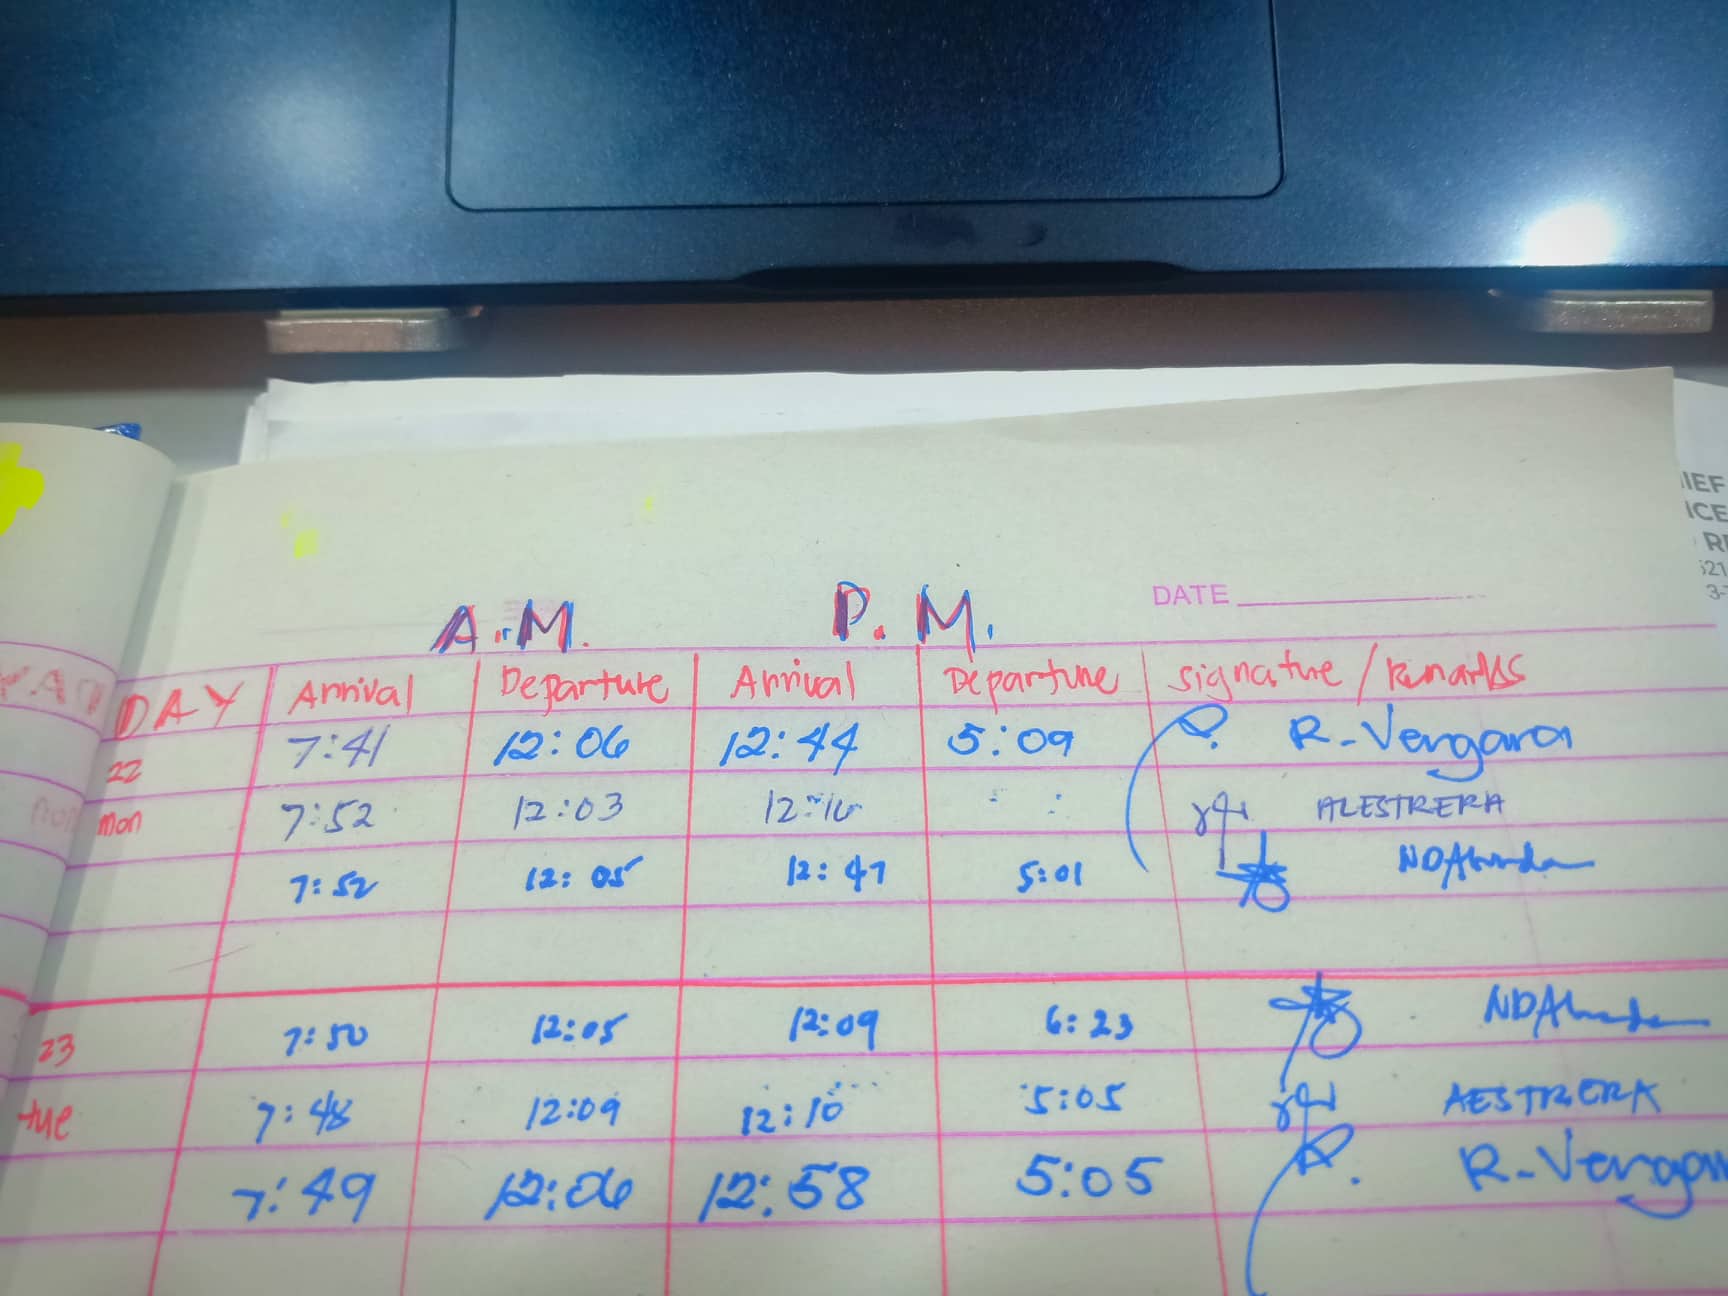 A.M. P.M. DATE
DAY Arrival Departure Arrival Departure Signature / Remarks
22 7:41 12:06 12:44 5:09 R-Vergara
mon 7:52 12:03 12:10 : ALESTRERA
7:52 12:05 12:47 5:01
23 7:50 12:05 12:09 6:23
tue 7:48 12:09 12:10 5:05 AESTRERA
7:49 12:06 12:58 5:05